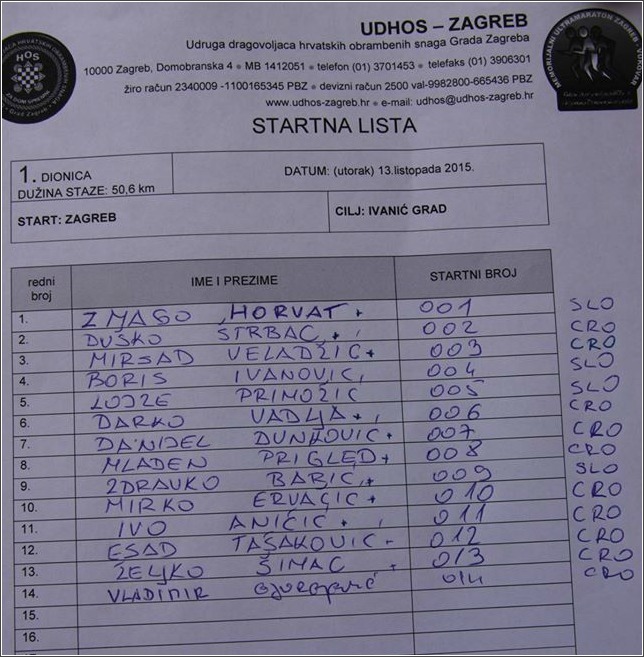 UDHOS – ZAGREB
Udruga dragovoljaca hrvatskih obrambenih snaga Grada Zagreba
10000 Zagreb, Domobranska 4 • MB 1412051 • telefon (01) 3701453 • telefaks (01) 3906301
žiro račun 2340009 -1100165345 PBZ • devizni račun 2500 val-9982800-665436 PBZ
www.udhos-zagreb.hr • e-mail: udhos@udhos-zagreb.hr
HOS
STARTNA LISTA
1. DIONICA
DUŽINA STAZE: 50,6 km
DATUM: (utorak) 13.listopada 2015.
START: ZAGREB CILJ: IVANIĆ GRAD
redni broj IME I PREZIME STARTNI BROJ
1. ZMAGO HORVAT 001 SLO
2. DUŠKO ŠTRBAC 002 CRO
3. MIRSAD VELADŽIĆ 003 CRO
4. BORIS IVANOVIĆ 004 SLO
5. LOJZE PRIMOŽIĆ 005 SLO
6. DARKO VADLJA 006 CRO
7. DANIJEL DUNKOVIĆ 007 CRO
8. MLADEN PRIGLED 008 CRO
9. ZDRAVKO BARIĆ 009 SLO
10. MIRKO ERVAČIĆ 010 CRO
11. IVO ANIČIĆ 011 CRO
12. ESAD TAŠAKOVIĆ 012 CRO
13. ŽELJKO ŠIMAC 013 CRO
14. VLADIMIR 014 CRO
15.
16.